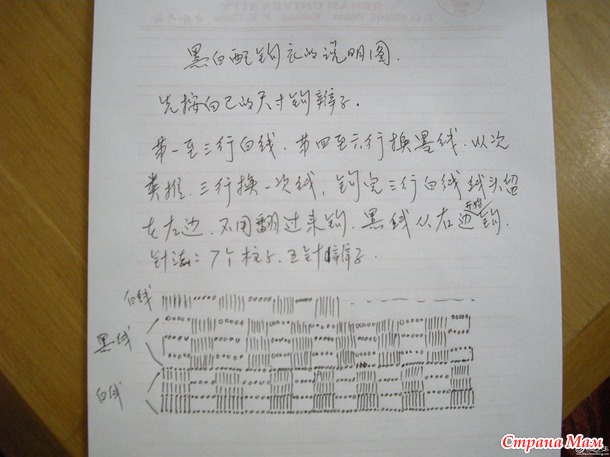 HENAN UNIVERSITY
黑白配钩衣的说明图.
先按自己的尺寸钩辫子.
第一至三行白线.第四至六行换黑线.以次
类推.三行换一次线,钩完三行白线线头留
在左边.不用翻过来钩.黑线从右边开始钩.
针法:7个柱子.五针辫子.
白线
黑线
白线
Страна Мам